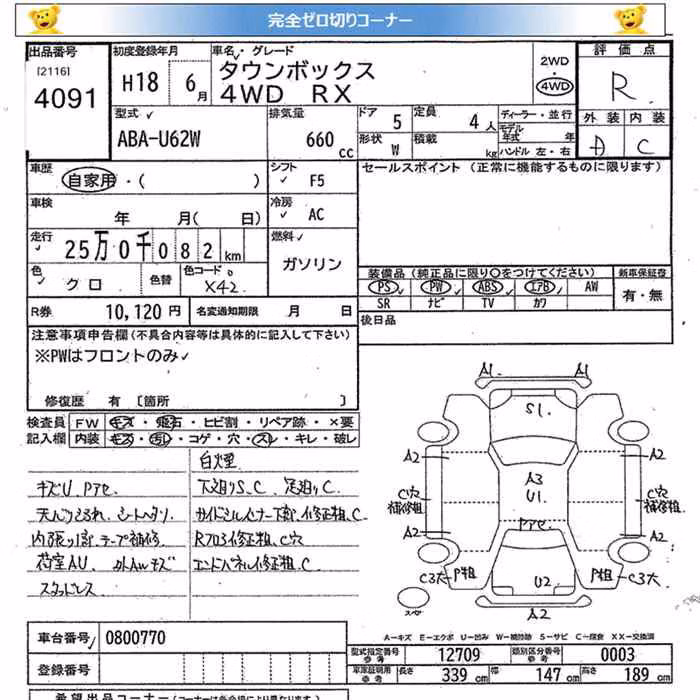 完全ゼロ切りコーナー
出品番号
[2116]
4091
初度登録年月
H18 6月
車名・グレード
タウンボックス
4WD RX
2WD
4WD
評価点
R
外装 内装
D C
型式
ABA-U62W
排気量
660 cc
ドア 5
形状 W
定員 4人
積載 kg
ディーラー・並行
モデル年式 年
ハンドル 左・右
車歴
自家用・( )
シフト
F5
セールスポイント (正常に機能するものに限ります)
車検
年 月( 日)
冷房
AC
走行
25万0千082km
燃料
ガソリン
色
クロ
色替
色コード
X42
装備品(純正品に限り○をつけてください)
新車保証書
PS PW ABS エアB AW
SR ナビ TV カワ
有・無
R券 10,120円
名変通知期限 月 日
後日品
注意事項申告欄(不具合内容等は具体的に記入して下さい)
※PWはフロントのみ
修復歴 有 [箇所 ]
検査員記入欄
FW キズ・飛石・ヒビ割・リペア跡・×要
内装 キズ・汚レ・コゲ・穴・スレ・キレ・破レ
白煙
キズU、Pアセ、
下廻りS、C、足廻りC
シートヘタリ
内張り
テープ補修
荷室AU
スタッドレス
A1 A1
S1
A2 A2
A3
U1
C穴
補修粗
C穴
補修粗
Pアセ
A2 A2
P粗 P粗
U2
A2
A-キズ E-エクボ U-凹み W-補修跡 S-サビ C-腐食 XX-交換済
車台番号 0800770
型式指定番号
参考
12709
類別区分番号
参考
0003
登録番号
車庫証明用
参考
長さ 339 cm 幅 147 cm 高さ 189 cm
希望出品コーナー